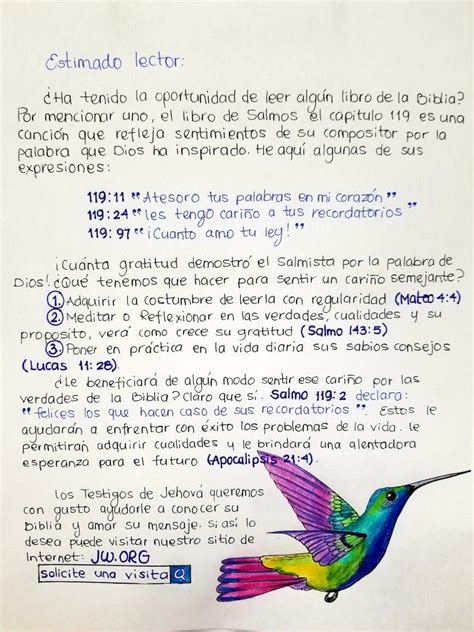 Estimado lector:
¿Ha tenido la oportunidad de leer algún libro de la Biblia?
Por mencionar uno, el libro de Salmos el capitulo 119 es una
canción que refleja sentimientos de su compositor por la
palabra que Dios ha inspirado. He aquí algunas de sus
expresiones:
119:11 "Atesoro tus palabras en mi corazón"
119:24 "les tengo cariño a tus recordatorios"
119:97 "¡Cuanto amo tu ley!"
¡Cuánta gratitud demostró el Salmista por la palabra de
Dios! ¿Qué tenemos que hacer para sentir un cariño semejante?
1. Adquirir la costumbre de leerla con regularidad (Mateo 4:4)
2. Meditar o Reflexionar en las verdades, cualidades y su
proposito, verá como crece su gratitud (Salmo 143:5)
3. Poner en práctica en la vida diaria sus sabios consejos
(Lucas 11:28).
¿Le beneficiará de algún modo sentir ese cariño por las
verdades de la Biblia? Claro que sí. Salmo 119:2 declara:
"felices los que hacen caso de sus recordatorios". Estos le
ayudarán a enfrentar con éxito los problemas de la vida. le
permitirán adquirir cualidades y le brindará una alentadora
esperanza para el futuro (Apocalipsis 21:4).
Los Testigos de Jehová queremos
con gusto ayudarle a conocer su
Biblia y amar su mensaje. si así lo
desea puede visitar nuestro sitio de
Internet: JW.ORG
solicite una visita